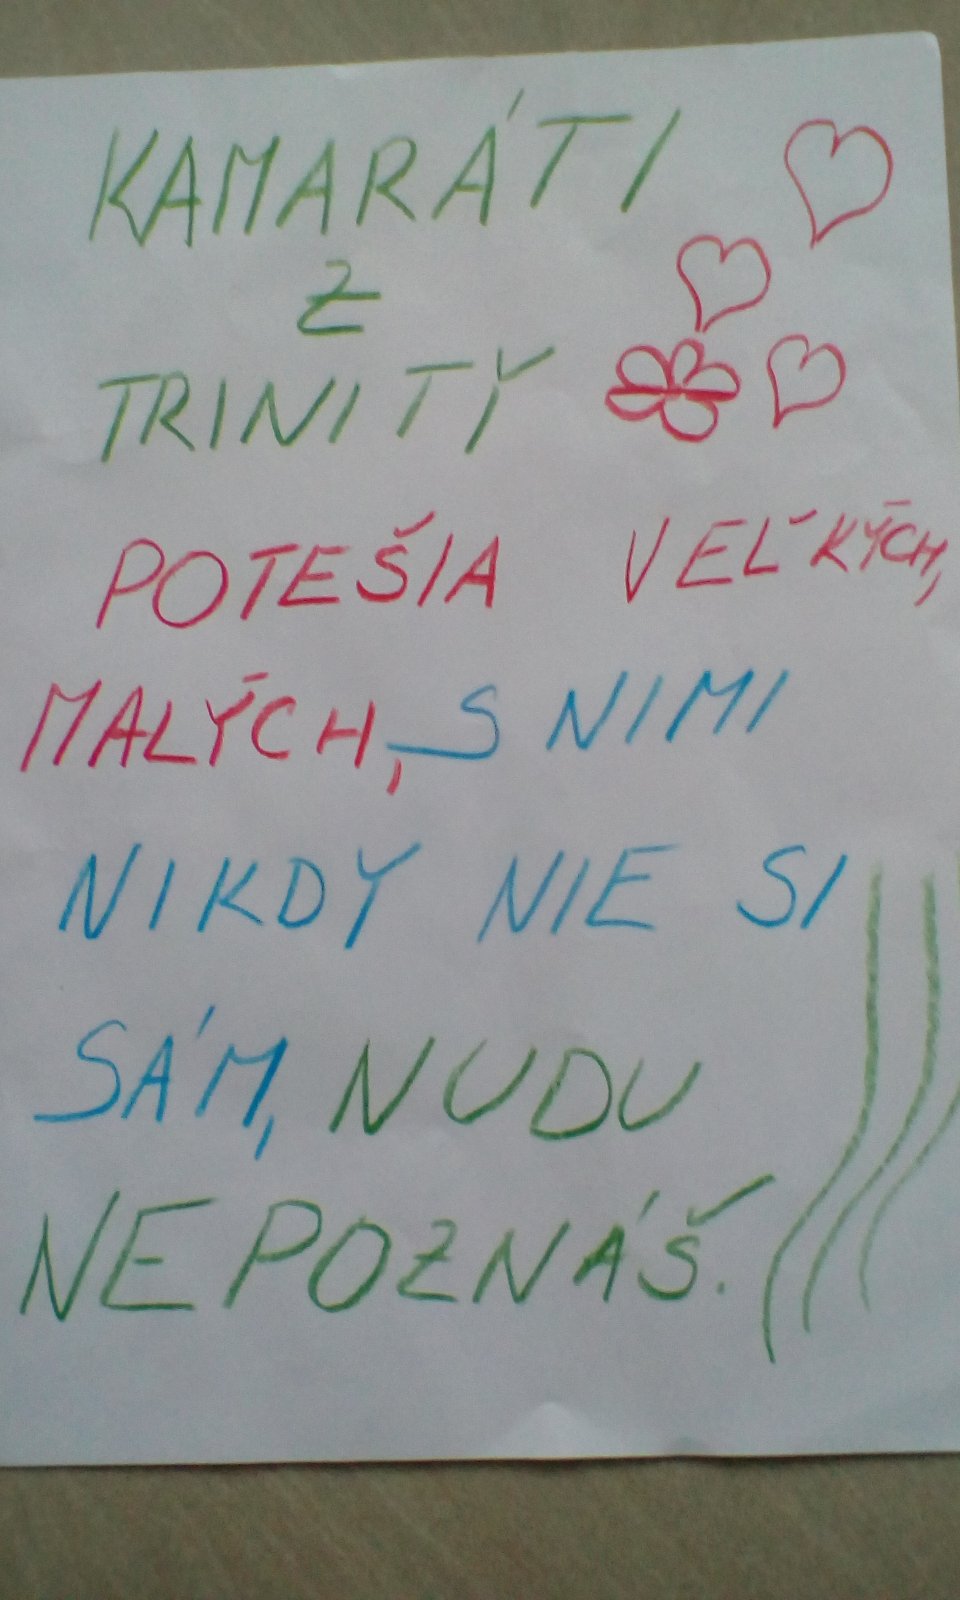 KAMARÁTI
Z
TRINITY
POTEŠIA VEĽKÝCH,
MALÝCH, S NIMI
NIKDY NIE SI
SÁM, NUDU
NEPOZNÁŠ.